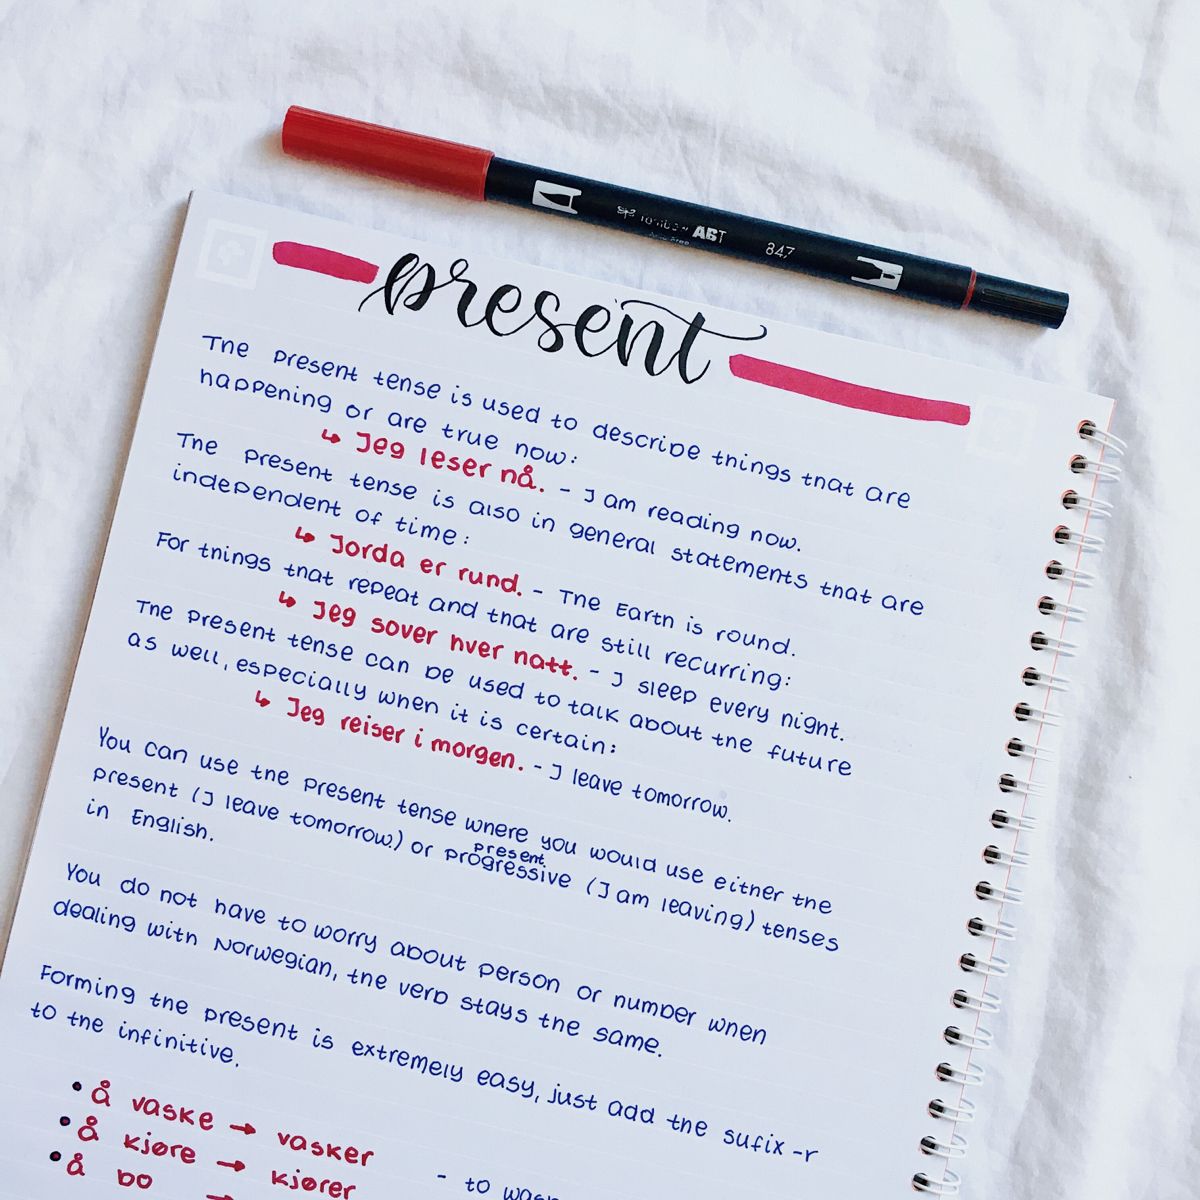 Tombow ABT 847
present
The present tense is used to describe things that are
happening or are true now:
↳ Jeg leser nå. - I am reading now.
The present tense is also in general statements that are
independent of time:
↳ Jorda er rund. - The Earth is round.
For things that repeat and that are still recurring:
↳ Jeg sover hver natt. - I sleep every night.
The present tense can be used to talk about the future
as well, especially when it is certain:
↳ Jeg reiser i morgen. - I leave tomorrow.
You can use the present tense where you would use either the
present (I leave tomorrow.) or present progressive (I am leaving) tenses
in English.
You do not have to worry about person or number when
dealing with Norwegian, the verb stays the same.
Forming the present is extremely easy, just add the sufix -r
to the infinitive.
• å vaske → vasker - to wash
• å kjøre → kjører
• å bo →